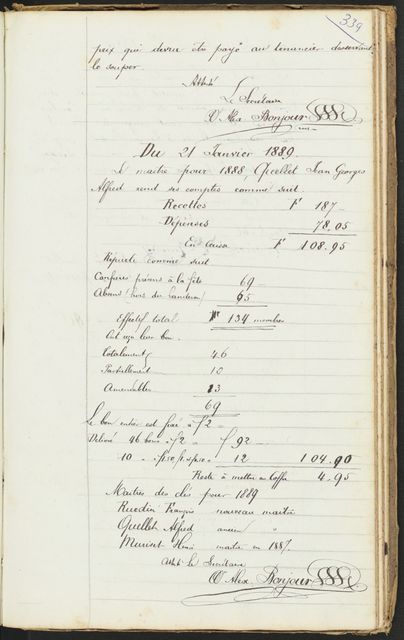 339
prix qui devra être payé au tenancier desservant
le souper.
Attesté
Le Secrétaire
Alex Bonjour
Du 21 Janvier 1889.
Le maître pour 1888, Quellet Jean Georges
Alfred rend ses comptes comme suit
Recettes F 187 –
Dépenses 78.05
En Caisse F 108.95
Répartit comme suit
Confrères présents à la fête 69 –
Absents (hors du 65
Effectif total 134 membres
Ont reçu leur bon.
Totalement 46
Partiellement 10
Amendables 13
69
Le bon entier est fixé à f 2 –
Délivré 46 bons à f 2 – f 92 –
10 12 104.00
Reste à mettre en Coffre 4.95
Maîtres des clés pour 1889
Ruedin François nouveau maître
Quellet Alfred ancien "
Muriset Henri maître en 1887.
Attesté le Secrétaire
Alex Bonjour